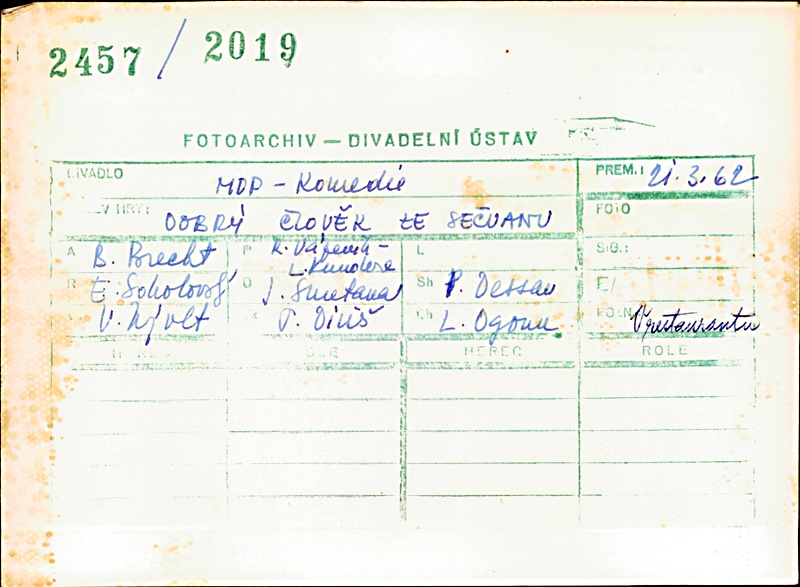 2457 / 2019
FOTOARCHIV — DIVADELNÍ ÚSTAV
DIVADLO MDP - Komedie PREM.: 21.3.62
HRY: DOBRÝ ČLOVĚK ZE SEČUANU FOTO
A B. Brecht P R. Vápeník - L. Kundera L SIG.:
R E. Sokolovský O J. Smetana Sh P. Dessau
V. Nývlt T. Diriš Ch L. Ogoun V restaurantu
HEREC ROLE